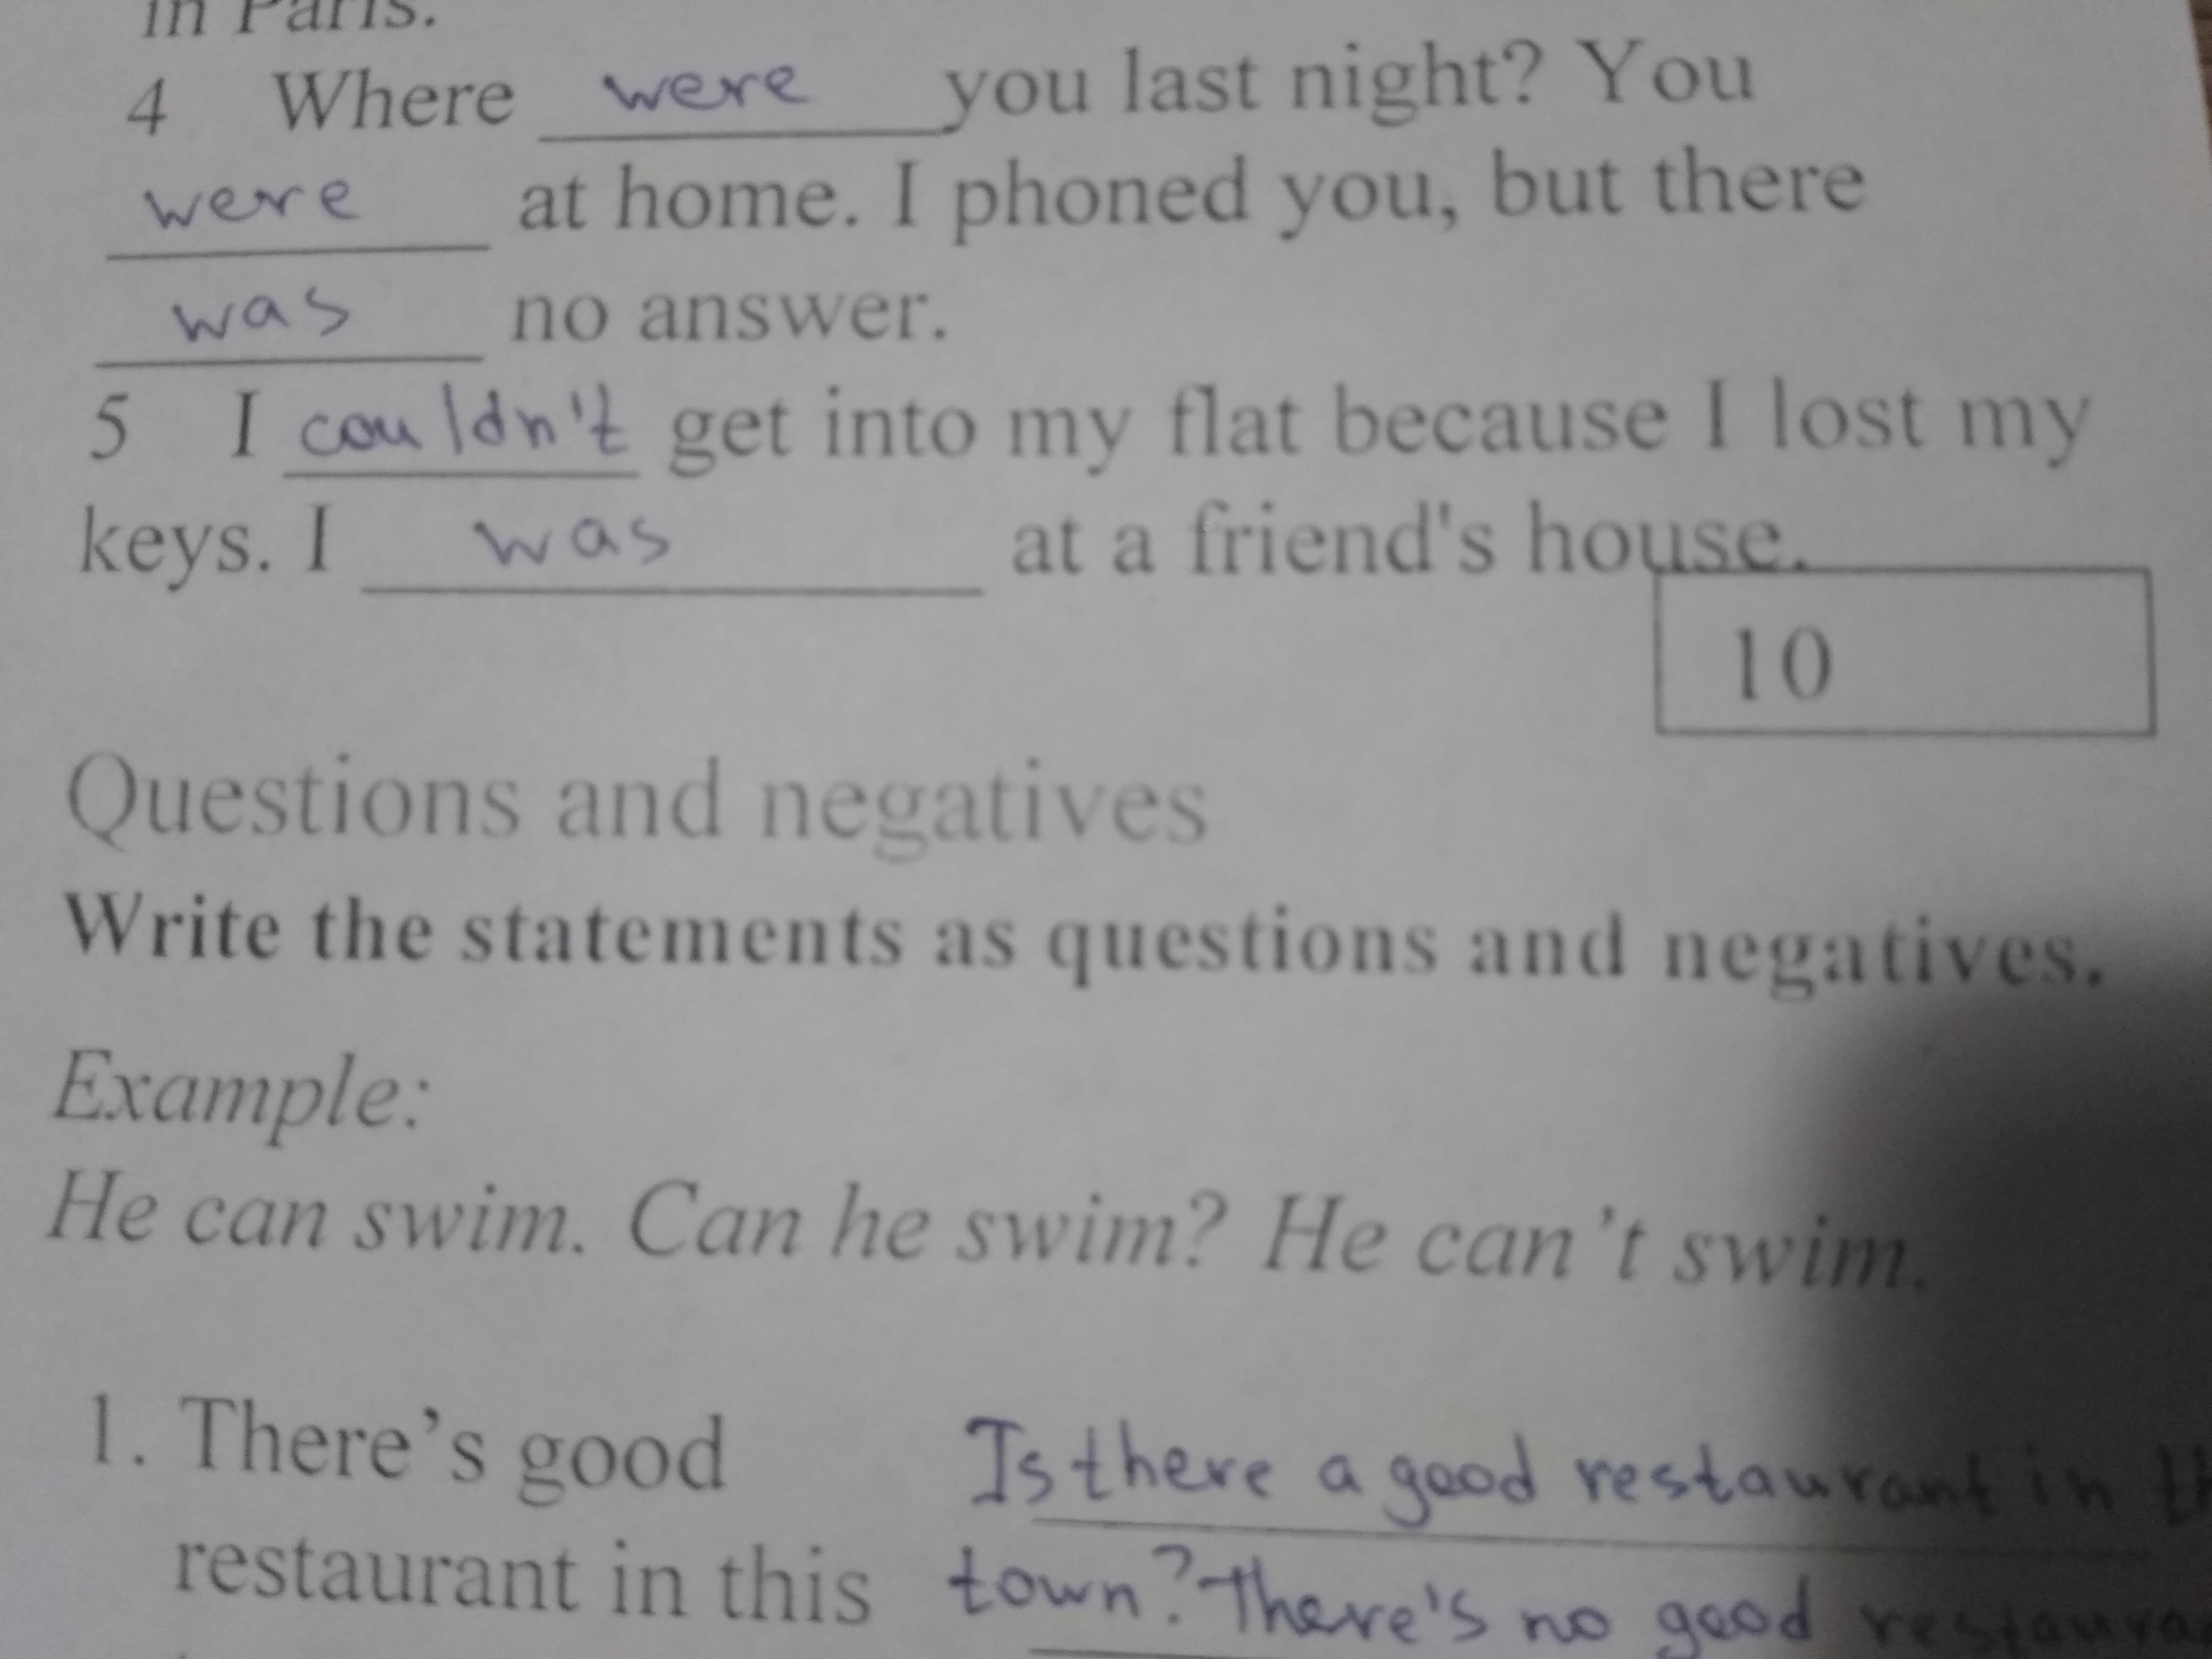 in Paris.
4 Where were you last night? You
were at home. I phoned you, but there
was no answer.
5 I couldn't get into my flat because I lost my
keys. I was at a friend's house.
10
Questions and negatives
Write the statements as questions and negatives.
Example:
He can swim. Can he swim? He can't swim.
1. There's good
restaurant in this
Is there a good restaurant in
town? There's no good